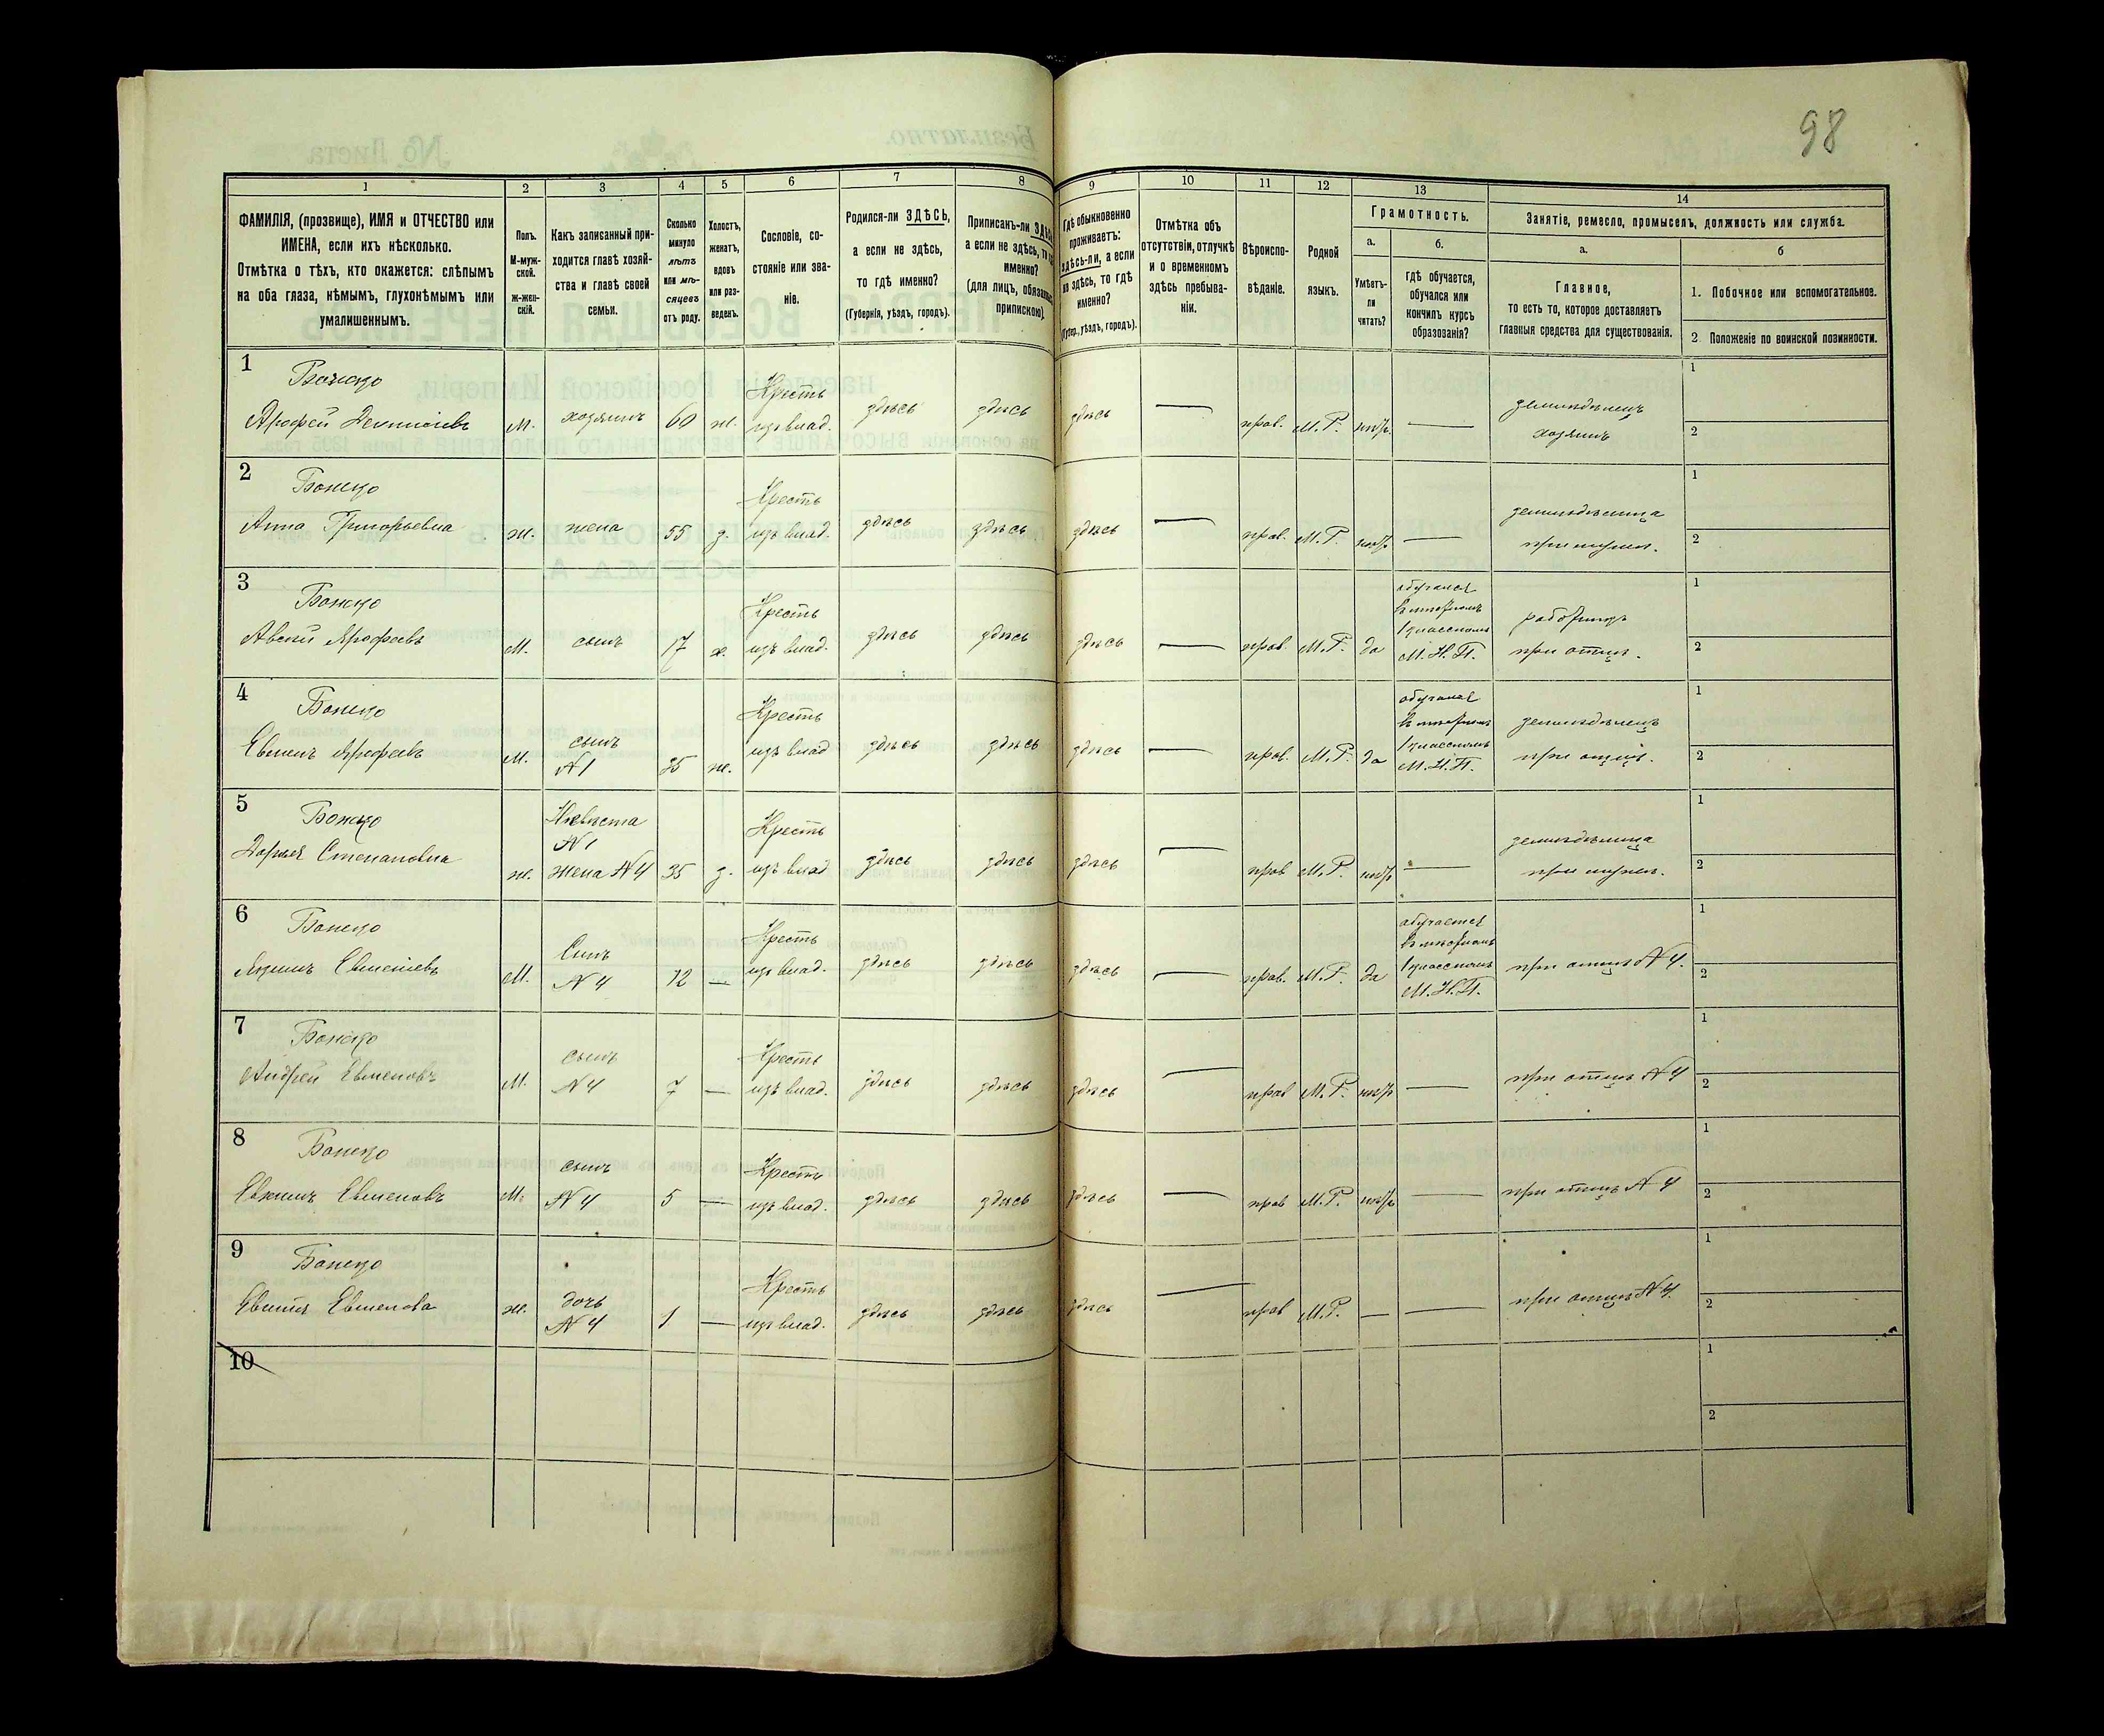 98
1 2 3 4 5 6 7 8 9 10 11 12 13 14
ФАМИЛІЯ, (прозвище), ИМЯ и ОТЧЕСТВО или
ИМЕНА, если ихъ нѣсколько.
Отмѣтка о тѣхъ, кто окажется: слѣпымъ
на оба глаза, нѣмымъ, глухонѣмымъ или
умалишеннымъ.
Полъ.
М-муж-
ской.
ж-жен-
скій.
Какъ записанный при-
ходится главѣ хозяй-
ства и главѣ своей
семьи.
Сколько
минуло
лѣтъ
или мѣ-
сяцевъ
отъ роду.
Холостъ,
женатъ,
вдовъ
или раз-
веденъ.
Сословіе, со-
стояніе или зва-
ніе.
Родился-ли ЗДѢСЬ,
а если не здѣсь,
то гдѣ именно?
(Губернія, уѣздъ, городъ).
Приписанъ-ли ЗДѢСЬ
а если не здѣсь, то
именно?
(для лицъ, обязан
припискою).
Гдѣ обыкновенно
проживаетъ:
здѣсь-ли, а если
не здѣсь, то гдѣ
именно?
(Губер., уѣздъ, городъ).
Отмѣтка объ
отсутствіи, отлучкѣ
и о временномъ
здѣсь пребыва-
ніи.
Вѣроиспо-
вѣданіе.
Родной
языкъ.
Грамотность.
а.
Умѣетъ-
ли
читать?
б.
гдѣ обучается,
обучался или
кончилъ курсъ
образованія?
Занятіе, ремесло, промыселъ, должность или служба.
а.
Главное,
то есть то, которое доставляетъ
главныя средства для существованія.
б
1. Побочное или вспомогательное.
2 Положеніе по воинской повинности.
1
Божко
М. хозяинъ 60 ж. Кресть
изъ влад. здѣсь здѣсь здѣсь — прав. М.Р. нѣтъ — земледѣлецъ
хозяинъ
1
2
2
Божко
Анна Григорьевна ж. жена 55 з. Кресть
изъ влад. здѣсь здѣсь здѣсь — прав. М.Р. нѣтъ — земледѣлица
при мужѣ.
1
2
3
Божко
М. сынъ 17 х. Кресть
изъ влад. здѣсь здѣсь здѣсь — прав. М.Р. да обучался
1 классномъ
М.Н.П.
при отцѣ.
1
2
4
Божко
М. сынъ
№1 35 ж. Кресть
изъ влад здѣсь здѣсь здѣсь — прав. М.Р. да обучался
1 классномъ
М.Н.П.
земледѣлецъ
при отцѣ.
1
2
5
Божко
Дарья Степановна ж. Невѣста
№1
жена №4 35 з. Кресть
изъ влад здѣсь здѣсь здѣсь — прав М.Р. нѣтъ — земледѣлица
при мужѣ.
1
2
6
Божко
М. Сынъ
№4 12 — Кресть
изъ влад. здѣсь здѣсь здѣсь — прав. М.Р. да обучается
1 классномъ
М.Н.П.
при отцѣ №4.
1
2
7
Божко
Андрей Евменовъ М. сынъ
№4 7 — Кресть
изъ влад. здѣсь здѣсь здѣсь — прав М.Р. нѣтъ — при отцѣ №4
1
2
8
Божко
Евменовъ М. сынъ
№4 5 — Кресть
изъ влад. здѣсь здѣсь здѣсь — прав М.Р. нѣтъ — при отцѣ №4
1
2
9
Божко
Евменова ж. дочь
№4 1 — Кресть
изъ влад. здѣсь здѣсь здѣсь — прав М.Р. — — при отцѣ №4.
1
2
10
1
2